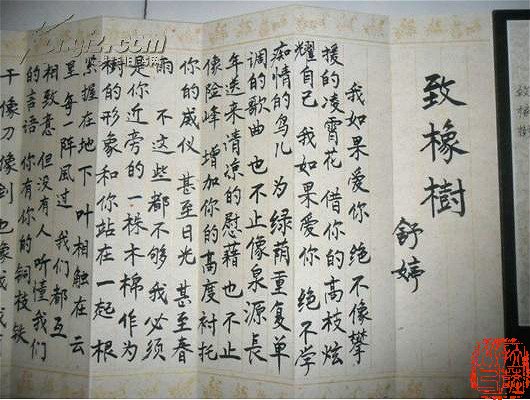 致橡樹
舒婷
我如果爱你 绝不像攀
援的凌霄花 借你的高枝炫
耀自己 我如果爱你 绝不学
痴情的鸟儿 为绿荫重复单
调的歌曲 也不止像泉源長
年送来清凉的慰藉 也不止
像险峰 增加你的高度 衬托
你的威仪 甚至日光 甚至春
雨 不 这些都不够 我必须
是你近旁的一株木棉 作为
树的形象和你站在一起 根
紧握在地下 叶 相触在云
里 每一阵风过 我们都互
相致意 但没有人 听懂我们
的言语 你有你的铜枝铁
干像刀像剑也像